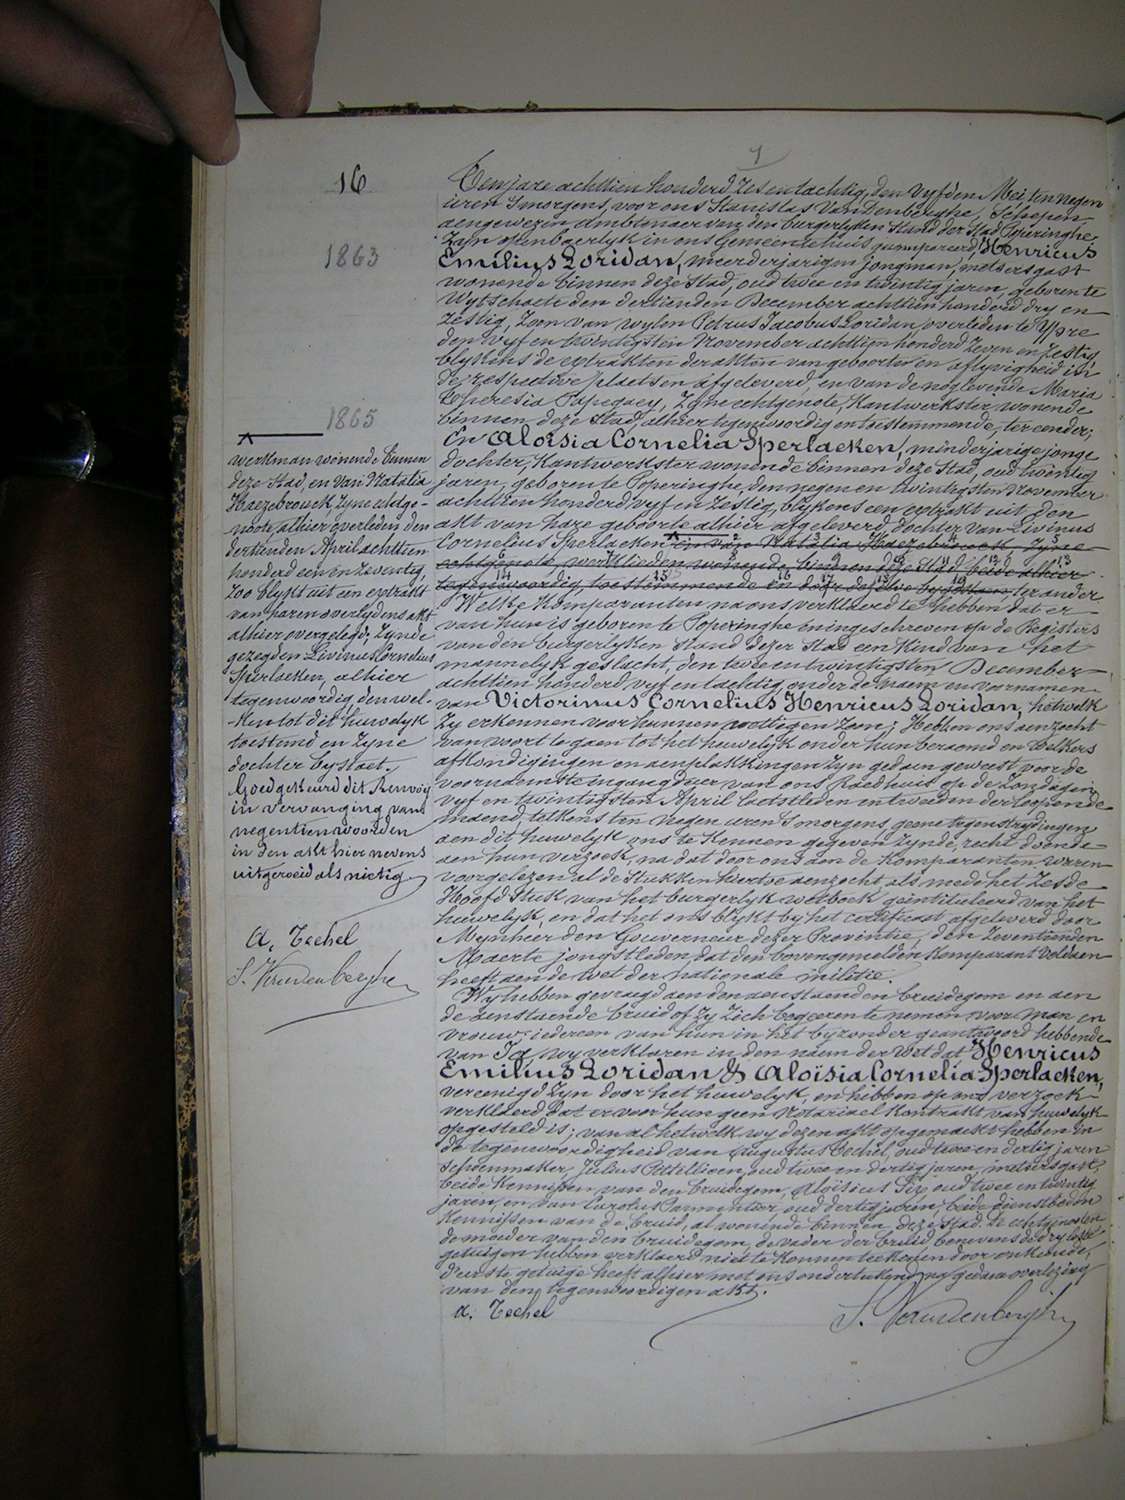 1
16
Ten jare achttien honderd zes en tachtig, den Vyfden Mei, ten negen
uren s'morgens, voor ons Stanislas Van Denberghe, Schepen,
aengewezen Ambtenaer van den burgerlyken Stand der Stad Poperinghe
Zyn openbaerlyk in ons Gemeentehuis gecompareerd, Henricus
1863
Emilius Loridan, meerderjarigen jongman, metsersgast
wonende binnen deze Stad, oud twee en twintig jaren, geboren te
Wytschaete den dertienden December achttien honderd dry en
zestig, Zoon van wylen Petrus Jacobus Loridan, overleden te Ypre
den vyf en twintigsten November achttien honderd zeven en zestig
blykens de extrakten der akten van geboorte en aflyvigheid in
de respective plaetsen afgeleverd, en van de noglevende Maria
Theresia Papegaey, Zyne echtgenote, Kantwerkster, wonende
binnen deze Stad, alhier tegenwoordig en toestemmende, ter eender;
1865
En Aloïsia Cornelia Sperlaeken, minderjarige jonge
dochter, Kantwerkster wonende binnen deze Stad, oud twintig
jaren, geboren te Poperinghe, den negen en twintigsten November
achttien honderd vyf en zestig, blykens een extrakt uit den
akt van hare geboorte alhier afgeleverd, dochter van Livinus
Cornelius Sperlaeken en van Natalia Haezebrouck, Zyne
echtgenote, werklieden wonende binnen deze Stad beide alhier
tegenwoordig, toestemmende en ter ander
Welke Komparanten na ons verklaerd te hebben dat er
van hun is geboren te Poperinghe en ingeschreven op de Registers
van den burgerlyken Stand dezer Stad een Kind van het
mannelyk geslacht, den twee en twintigsten December
achttien honderd vyf en tachtig, onder de naem en voornamen
van Victorinus Cornelius Henricus Loridan, hetwelk
Zy erkennen voor hunnen wettigen Zoon; Hebben ons aenzocht
van voort te gaen tot het huwelyk onder hun beraemd en welkers
afkondigingen en aenplakkingen zyn gedaen geweest voor de
voornaemste ingangdeur van ons Raedhuis op de Zondagen
vyf en twintigsten April laetstleden en tweeden der loopende
maend, telkens ten negen uren s'morgens, geene tegenstrydingen
aen dit huwelyk ons te kennen gegeven zynde, recht doende
aen hun verzoek, na dat door ons aen de Komparanten waren
voorgelezen al de Stukken hiertoe aenzocht als mede het zesde
Hoofdstuk van het burgerlyk wetboek geïntituleerd van het
huwelyk, en dat het ons blykt by het certificaet afgeleverd door
Mynheer den Gouverneur dezer Provintie, den Zeventienden
Maerte jongstleden, dat den bovengemelden Komparant voldaen
heeft aen de wet der nationale militie.
Wy hebben gevraegd aen den aenstaenden bruidegom en aen
de aenstaende bruid of zy zich begeeren te nemen voor man en
vrouw; iedereen van hun in het byzonder geantwoord hebbende
van Ja, wy verklaren in den naem der Wet dat Henricus
Emilius Loridan & Aloïsia Cornelia Sperlaeken,
vereenigd zyn door het huwelyk, en hebben op ons verzoek
verklaerd dat er voor hun geen Notariael Kontrakt van huwelyk
opgesteld is; van al hetwelk wy dezen akt opgemaekt hebben in
de tegenwoordigheid van Augustus Techel, oud twee en dertig jaren
Schoenmaker, Julius oud twee en dertig jaren, metsersgast,
beide Kennissen van den bruidegom, Aloïsius oud twee en twintig
jaren, en van Carolus Parmentier oud dertig jaren, beide dienstboden
Kennissen van de bruid, al wonende binnen deze Stad. De echtgenoten
de moeder van den bruidegom, de vader der bruid benevens de dry laetste
getuigen hebben verklaerd niet te Konnen teekenen door onkunde,
d'eerste getuige heeft alhier met ons onderteekend na gedane overlezing
van den tegenwoordigen akt.
A. Techel
S. Vandenberghe
werkman wonende binnen
deze Stad, en van Natalia
Haezebrouck, Zyne echtge-
noote, alhier overleden den
dertienden April achttien
honderd een en zeventig,
zoo blykt uit een extrakt
van haren overlydens akt
alhier overgelegd; Zynde
gezegden Livinus Cornelius
Sperlaeken, alhier
tegenwoordig, den wel-
-ken tot dit huwelyk
toestemd en zyne
dochter bystaet.
Goedgekeurd dit Renvoy
in vervanging van
negentien woorden
in den akt hiernevens
uitgeroeid als nietig
A. Techel
S. Vandenberghe